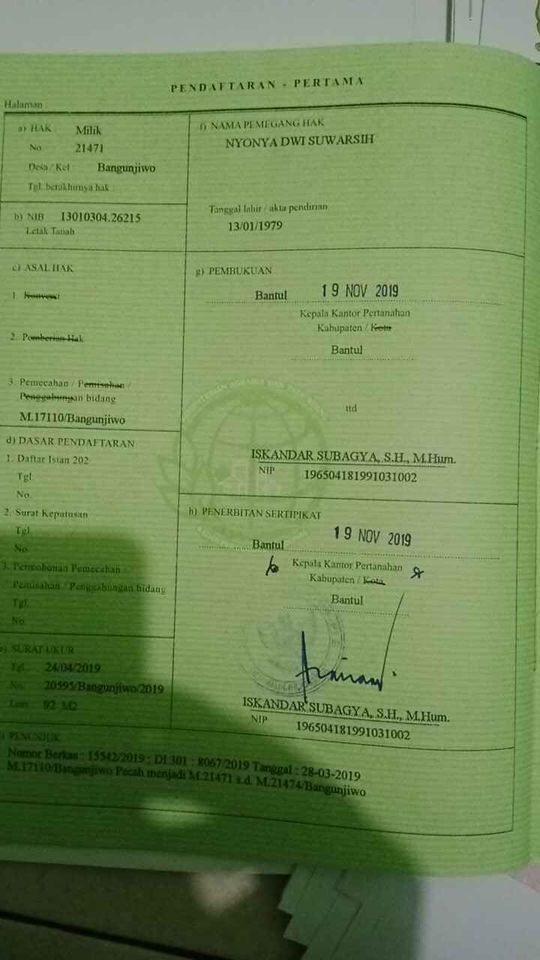 PENDAFTARAN - PERTAMA
Halaman
a) HAK : Milik
No. 21471
Desa / Kel Bangunjiwo
Tgl. berakhirnya hak :
b) NIB 13010304.26215
Letak Tanah
c) ASAL HAK
1. Konversi
2. Pemberian Hak
3. Pemecahan / Pemisahan /
Penggabungan bidang
M.17110/Bangunjiwo
d) DASAR PENDAFTARAN
1. Daftar Isian 202
Tgl.
No.
2. Surat Keputusan
Tgl.
No.
3. Permohonan Pemecahan /
Pemisahan / Penggabungan bidang
Tgl.
No.
e) SURAT UKUR
Tgl. 24/04/2019
No. 20595/Bangunjiwo/2019
Luas 92 M2
f) NAMA PEMEGANG HAK
NYONYA DWI SUWARSIH
Tanggal lahir / akta pendirian
13/01/1979
g) PEMBUKUAN
Bantul 19 NOV 2019
Kepala Kantor Pertanahan
Kabupaten / Kota
Bantul
ttd
ISKANDAR SUBAGYA, S.H., M.Hum.
NIP 196504181991031002
h) PENERBITAN SERTIPIKAT
Bantul 19 NOV 2019
Kepala Kantor Pertanahan
Kabupaten / Kota
Bantul
ISKANDAR SUBAGYA, S.H., M.Hum.
NIP 196504181991031002
i) PENUNJUK
Nomor Berkas : 15542/2019 ; DI.301 : 8067/2019 Tanggal : 28-03-2019
M.17110/Bangunjiwo Pecah menjadi M.21471 s.d. M.21474/Bangunjiwo